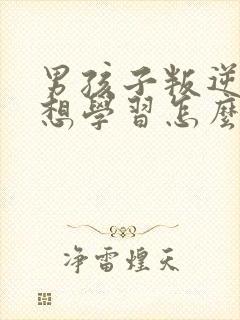 男孩子叛逆
想學習怎麼
净雷煌天